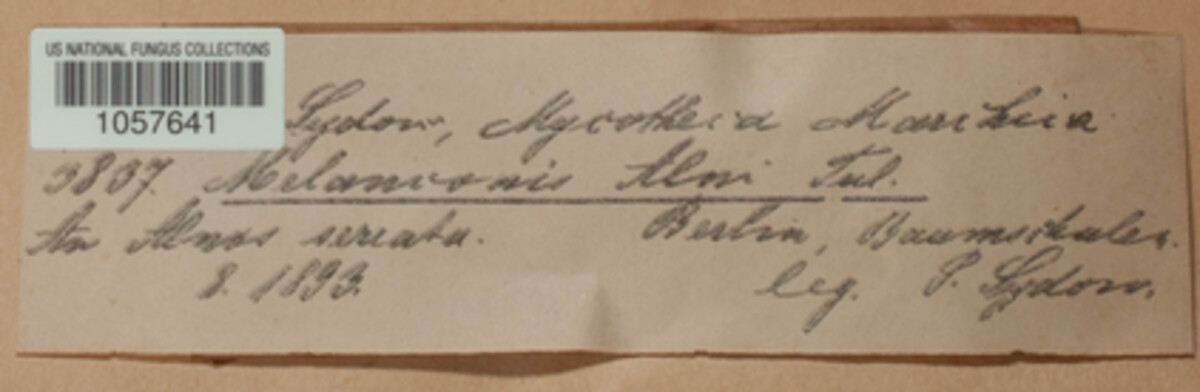 US NATIONAL FUNGUS COLLECTIONS
1057641
Sydow, Mycotheca Marchica
3837. Melanconis Alni Tul.
An Alnus serrata. Berlin, Baumschulen.
8. 1893. leg. P. Sydow.